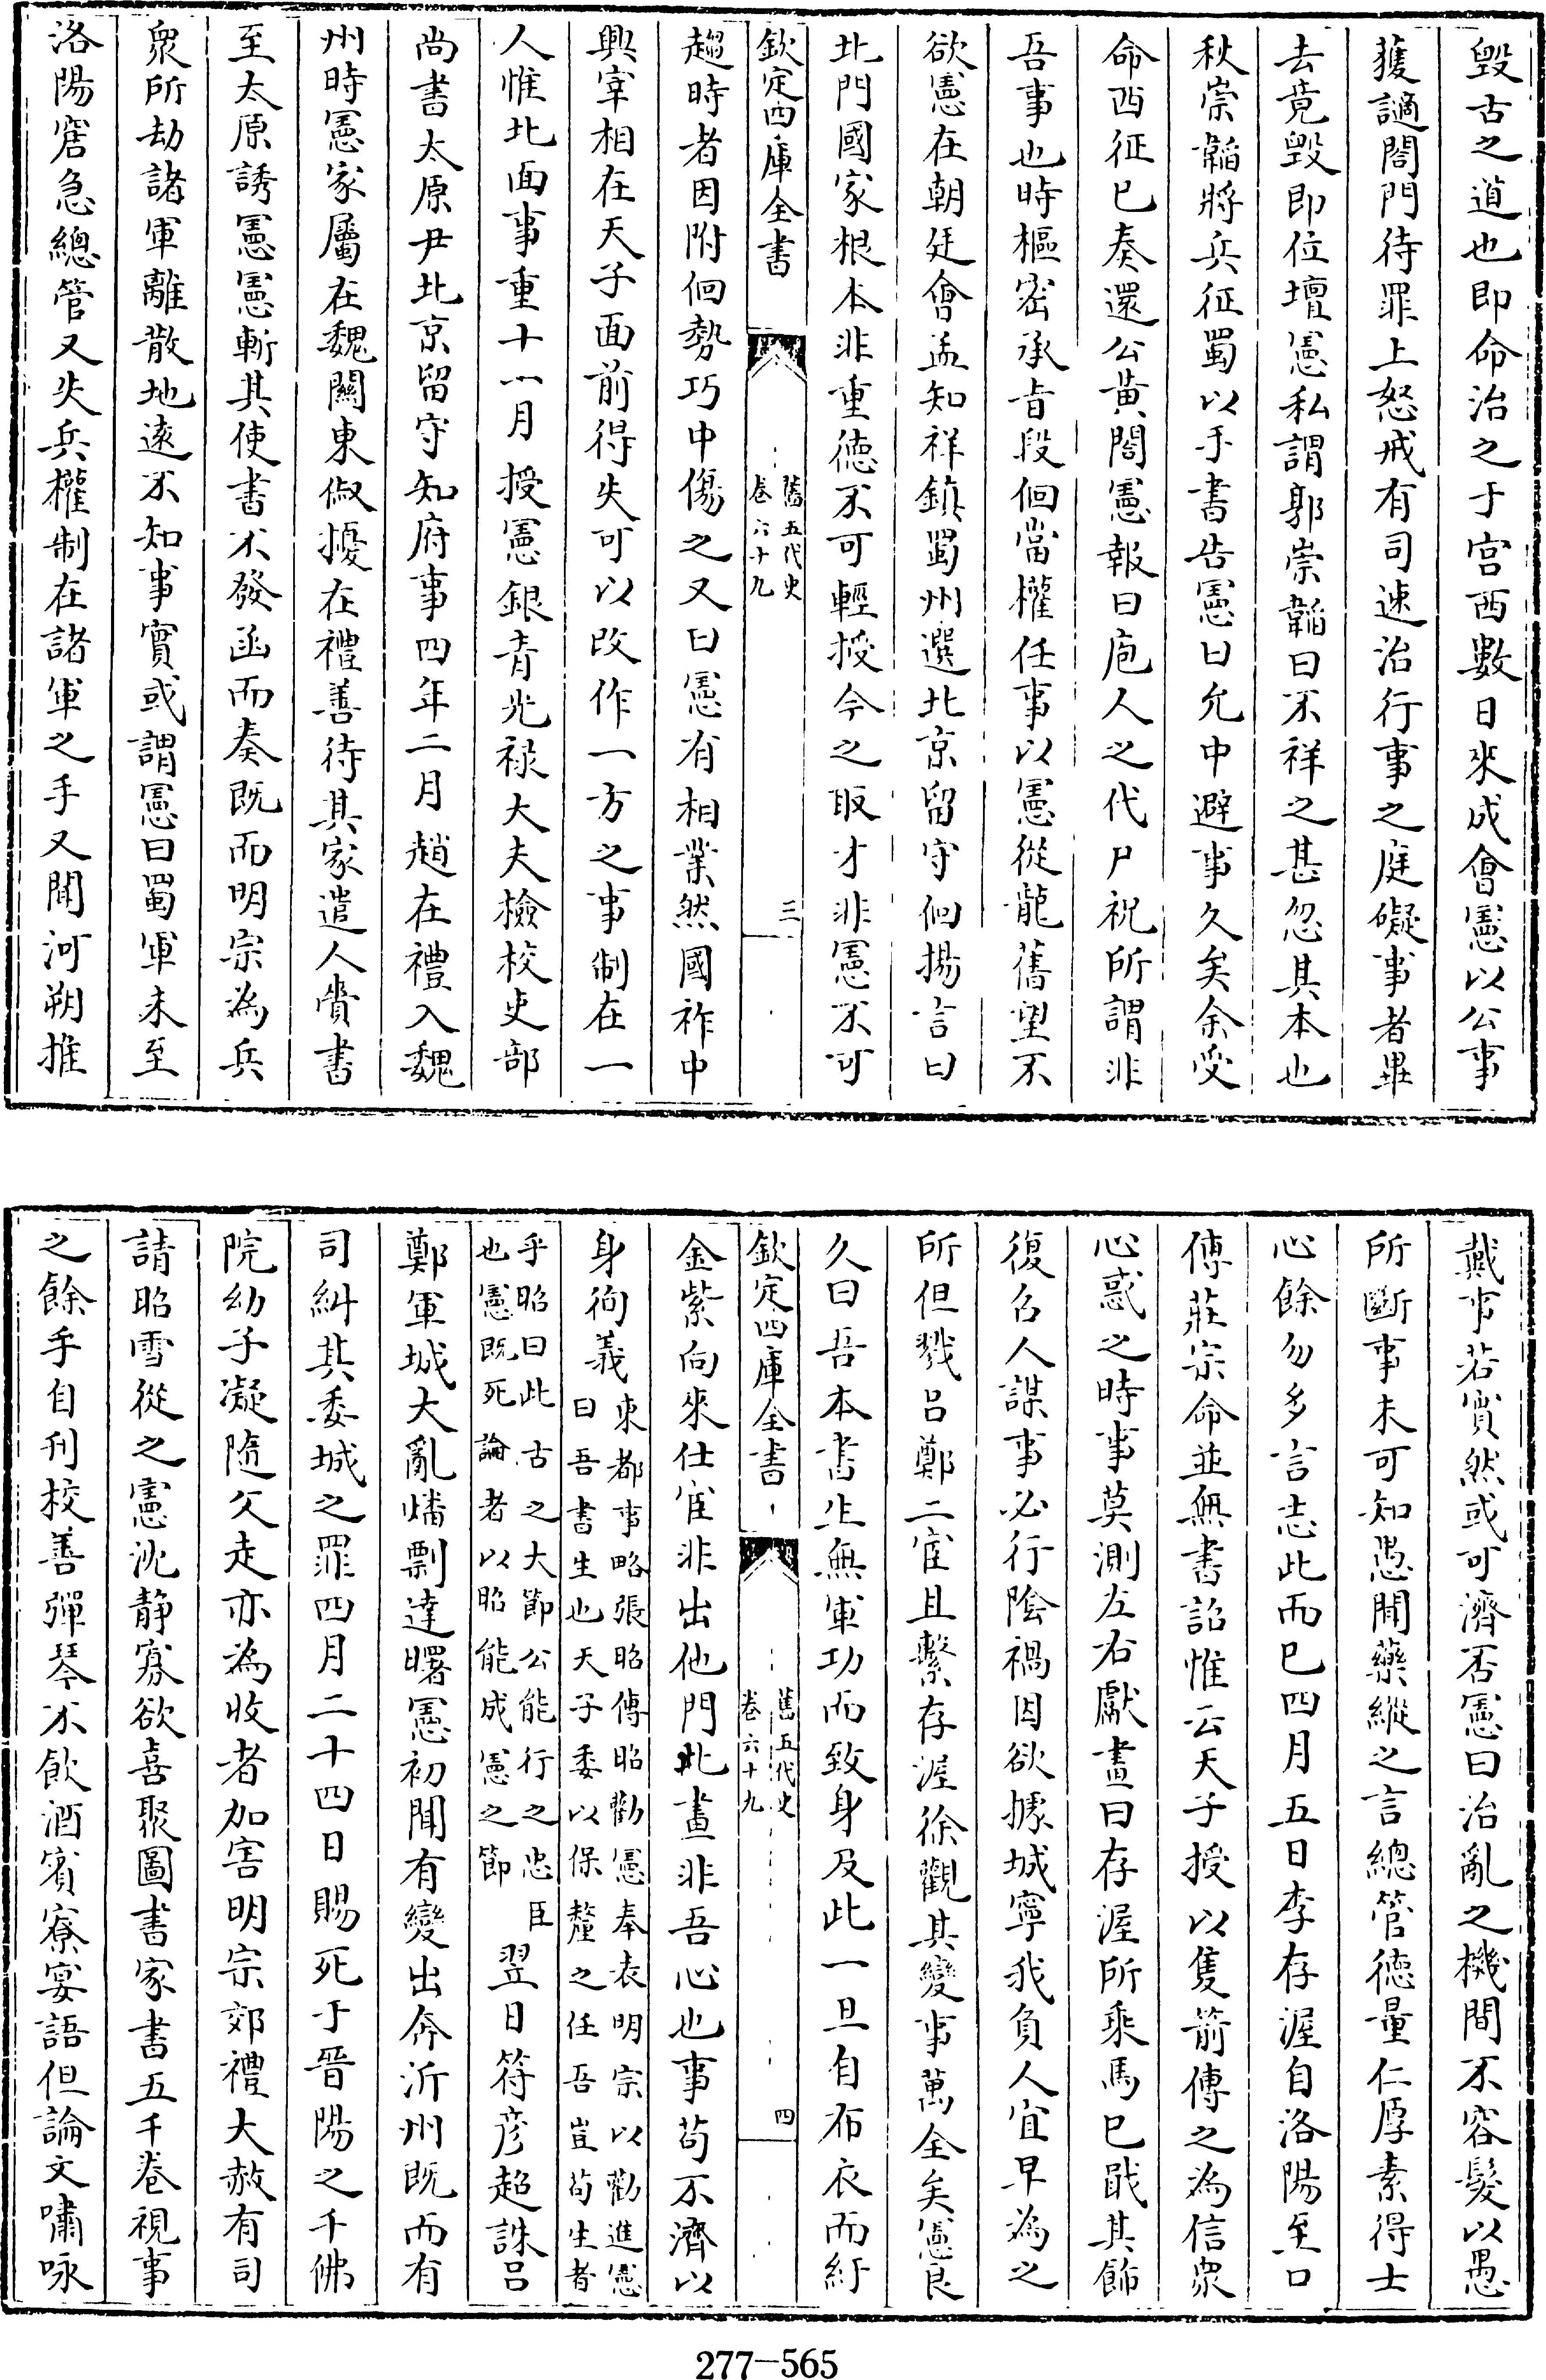 毀古之道也即命治之于宫西數日來成會憲以公事
獲譴閤門待罪上怒戒有司速治行事之庭礙事者畢
去竟毀即位壇憲私謂郭崇韜曰不祥之甚忽其本也
秋崇韜將兵征蜀以手書告憲曰允中避事久矣余受
命西征已奏還公黄閤憲報曰庖人之代尸祝所謂非
吾事也時樞密承旨段徊當權任事以憲從龍舊望不
欲憲在朝廷會孟知祥鎮蜀州選北京留守徊揚言曰
北門國家根本非重徳不可輕授今之取才非憲不可
欽定四庫全書
舊五代史
卷六十九
三
趨時者因附徊勢巧中傷之又曰憲有相業然國祚中
興宰相在天子面前得失可以改作一方之事制在一
人惟北面事重十一月授憲銀青光禄大夫檢校吏部
尚書太原尹北京留守知府事四年二月趙在禮入魏
州時憲家屬在魏關東俶擾在禮善待其家遣人賫書
至太原誘憲憲斬其使書不發函而奏既而明宗為兵
衆所劫諸軍離散地逺不知事實或謂憲曰蜀軍未至
洛陽窘急總管又失兵權制在諸軍之手又聞河朔推
戴事若實然或可濟否憲曰治亂之機間不容髮以愚
所斷事未可知愚聞藥縱之言總管徳量仁厚素得士
心餘勿多言志此而已四月五日李存渥自洛陽至口
傳莊宗命並無書詔惟云天子授以隻箭傳之為信衆
心惑之時事莫測左右獻畫曰存渥所乘馬已戢其飾
復召人謀事必行陰禍因欲據城寧我負人宜早為之
所但戮呂鄭二宦且繫存渥徐觀其變事萬全矣憲良
久曰吾本書生無軍功而致身及此一旦自布衣而紆
欽定四庫全書
舊五代史
卷六十九
四
金紫向來仕宦非出他門此畫非吾心也事茍不濟以
身徇義東都事略張昭傳昭勸憲奉表明宗以勸進憲
曰吾書生也天子委以保釐之任吾豈茍生者
乎昭曰此古之大節公能行之忠臣
也憲既死論者以昭能成憲之節翌日符彦超誅呂
鄭軍城大亂燔剽達曙憲初聞有變出奔沂州既而有
司糾其委城之罪四月二十四日賜死于晉陽之千佛
院幼子凝隨父走亦為收者加害明宗郊禮大赦有司
請昭雪從之憲沈静寡欲喜聚圖書家書五千卷視事
之餘手自刊校善彈琴不飲酒賓寮宴語但論文嘯咏
277—565